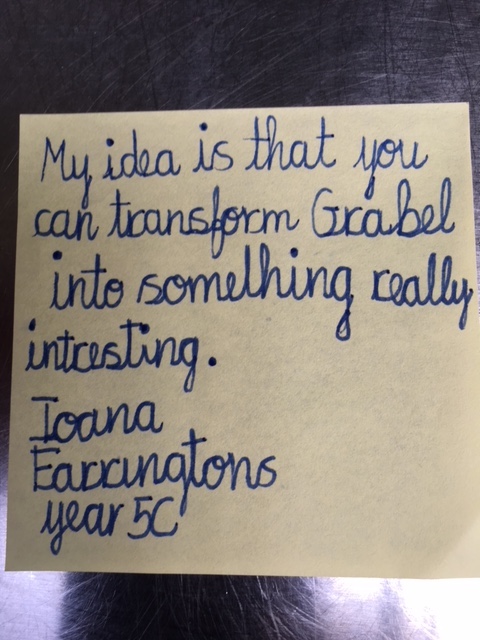 My idea is that you
can transform Grabel
into something really
intresting.
Ioana
Farringtons
year 5C